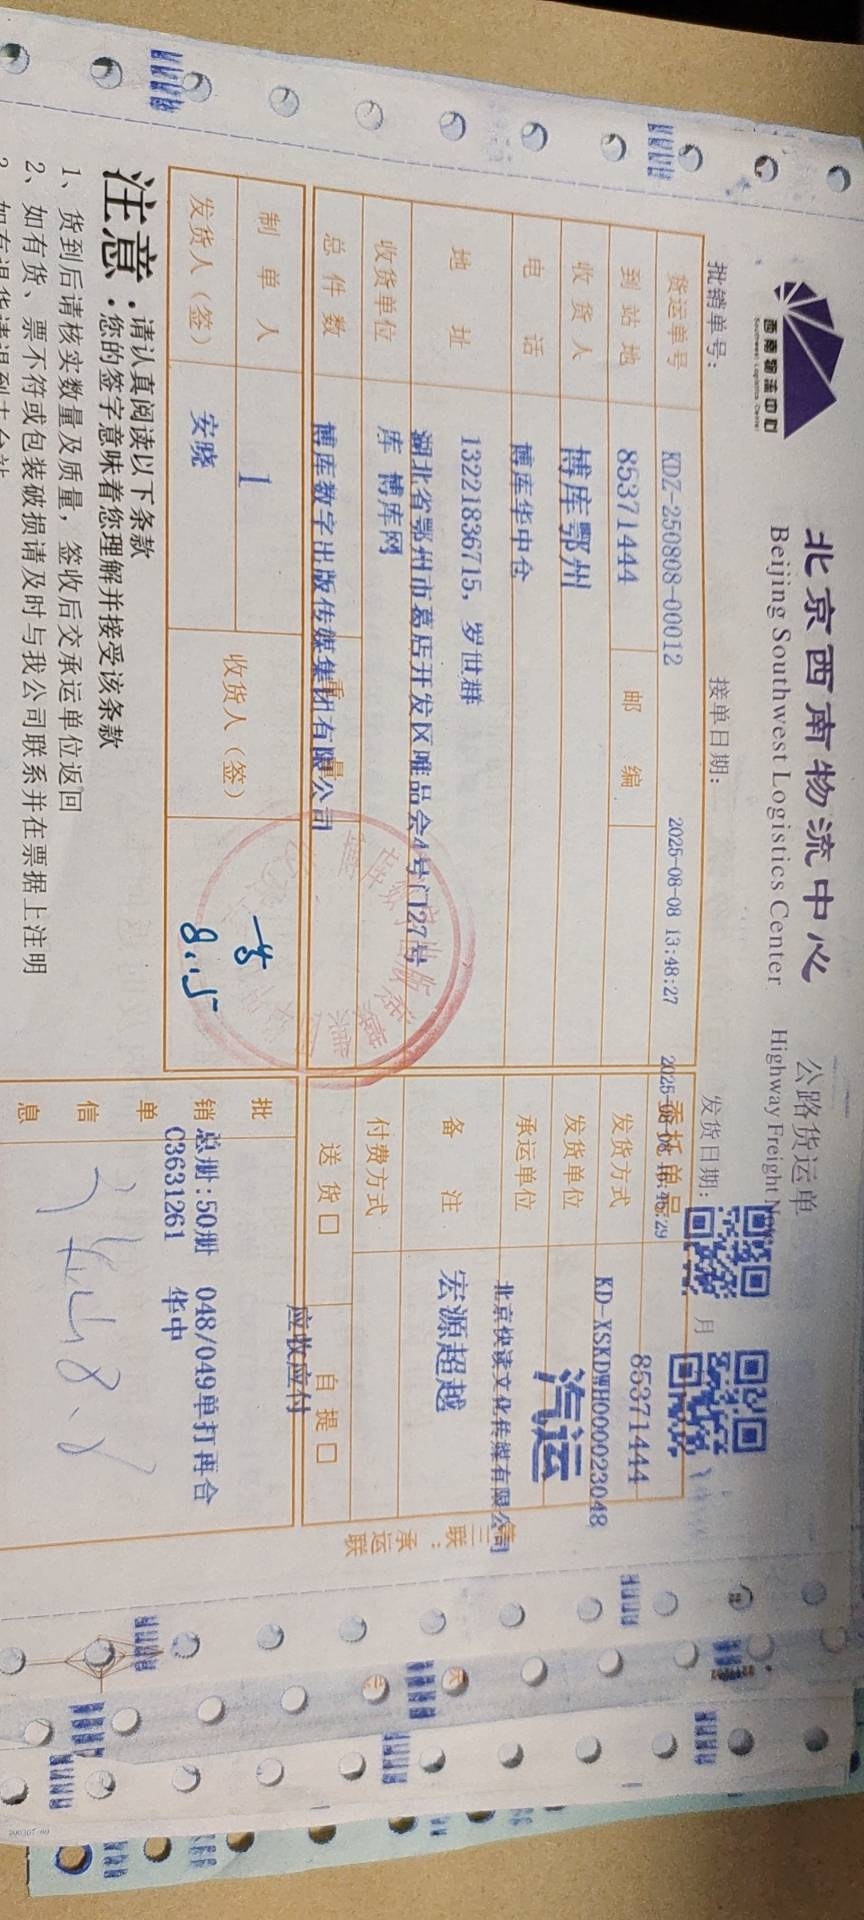 西南物流中心
Southwest Logistics Center
北京西南物流中心 公路货运单
Beijing Southwest Logistics Center Highway Freight
批销单号： 接单日期： 发货日期： 月
货运单号 KDZ-250808-00012 2025-08-08 13:48:27 委托单号 85371444
到站地 85371444 邮编 发货方式 KD-XSKDWH000023048
收货人 博库鄂州 发货单位 汽运
电话 博库华中仓 承运单位 北京快读文化传媒有限公司
13221836715，罗世群
地址 湖北省鄂州市葛店开发区唯品会4号门27号 备注 宏源超越
收货单位 库 博库网 付费方式
总件数 博库数字出版传媒集团有限公司 重量 送货口 自提口
应收应付
制单人 1 收货人（签）
发货人（签） 安晓
8.15
批销单信息 总册:50册 048/049单打再合
C3631261 华中
第三联：承运联
注意：请认真阅读以下条款
您的签字意味着您理解并接受该条款
1、货到后请核实数量及质量，签收后交承运单位返回
2、如有货、票不符或包装破损请及时与我公司联系并在票据上注明